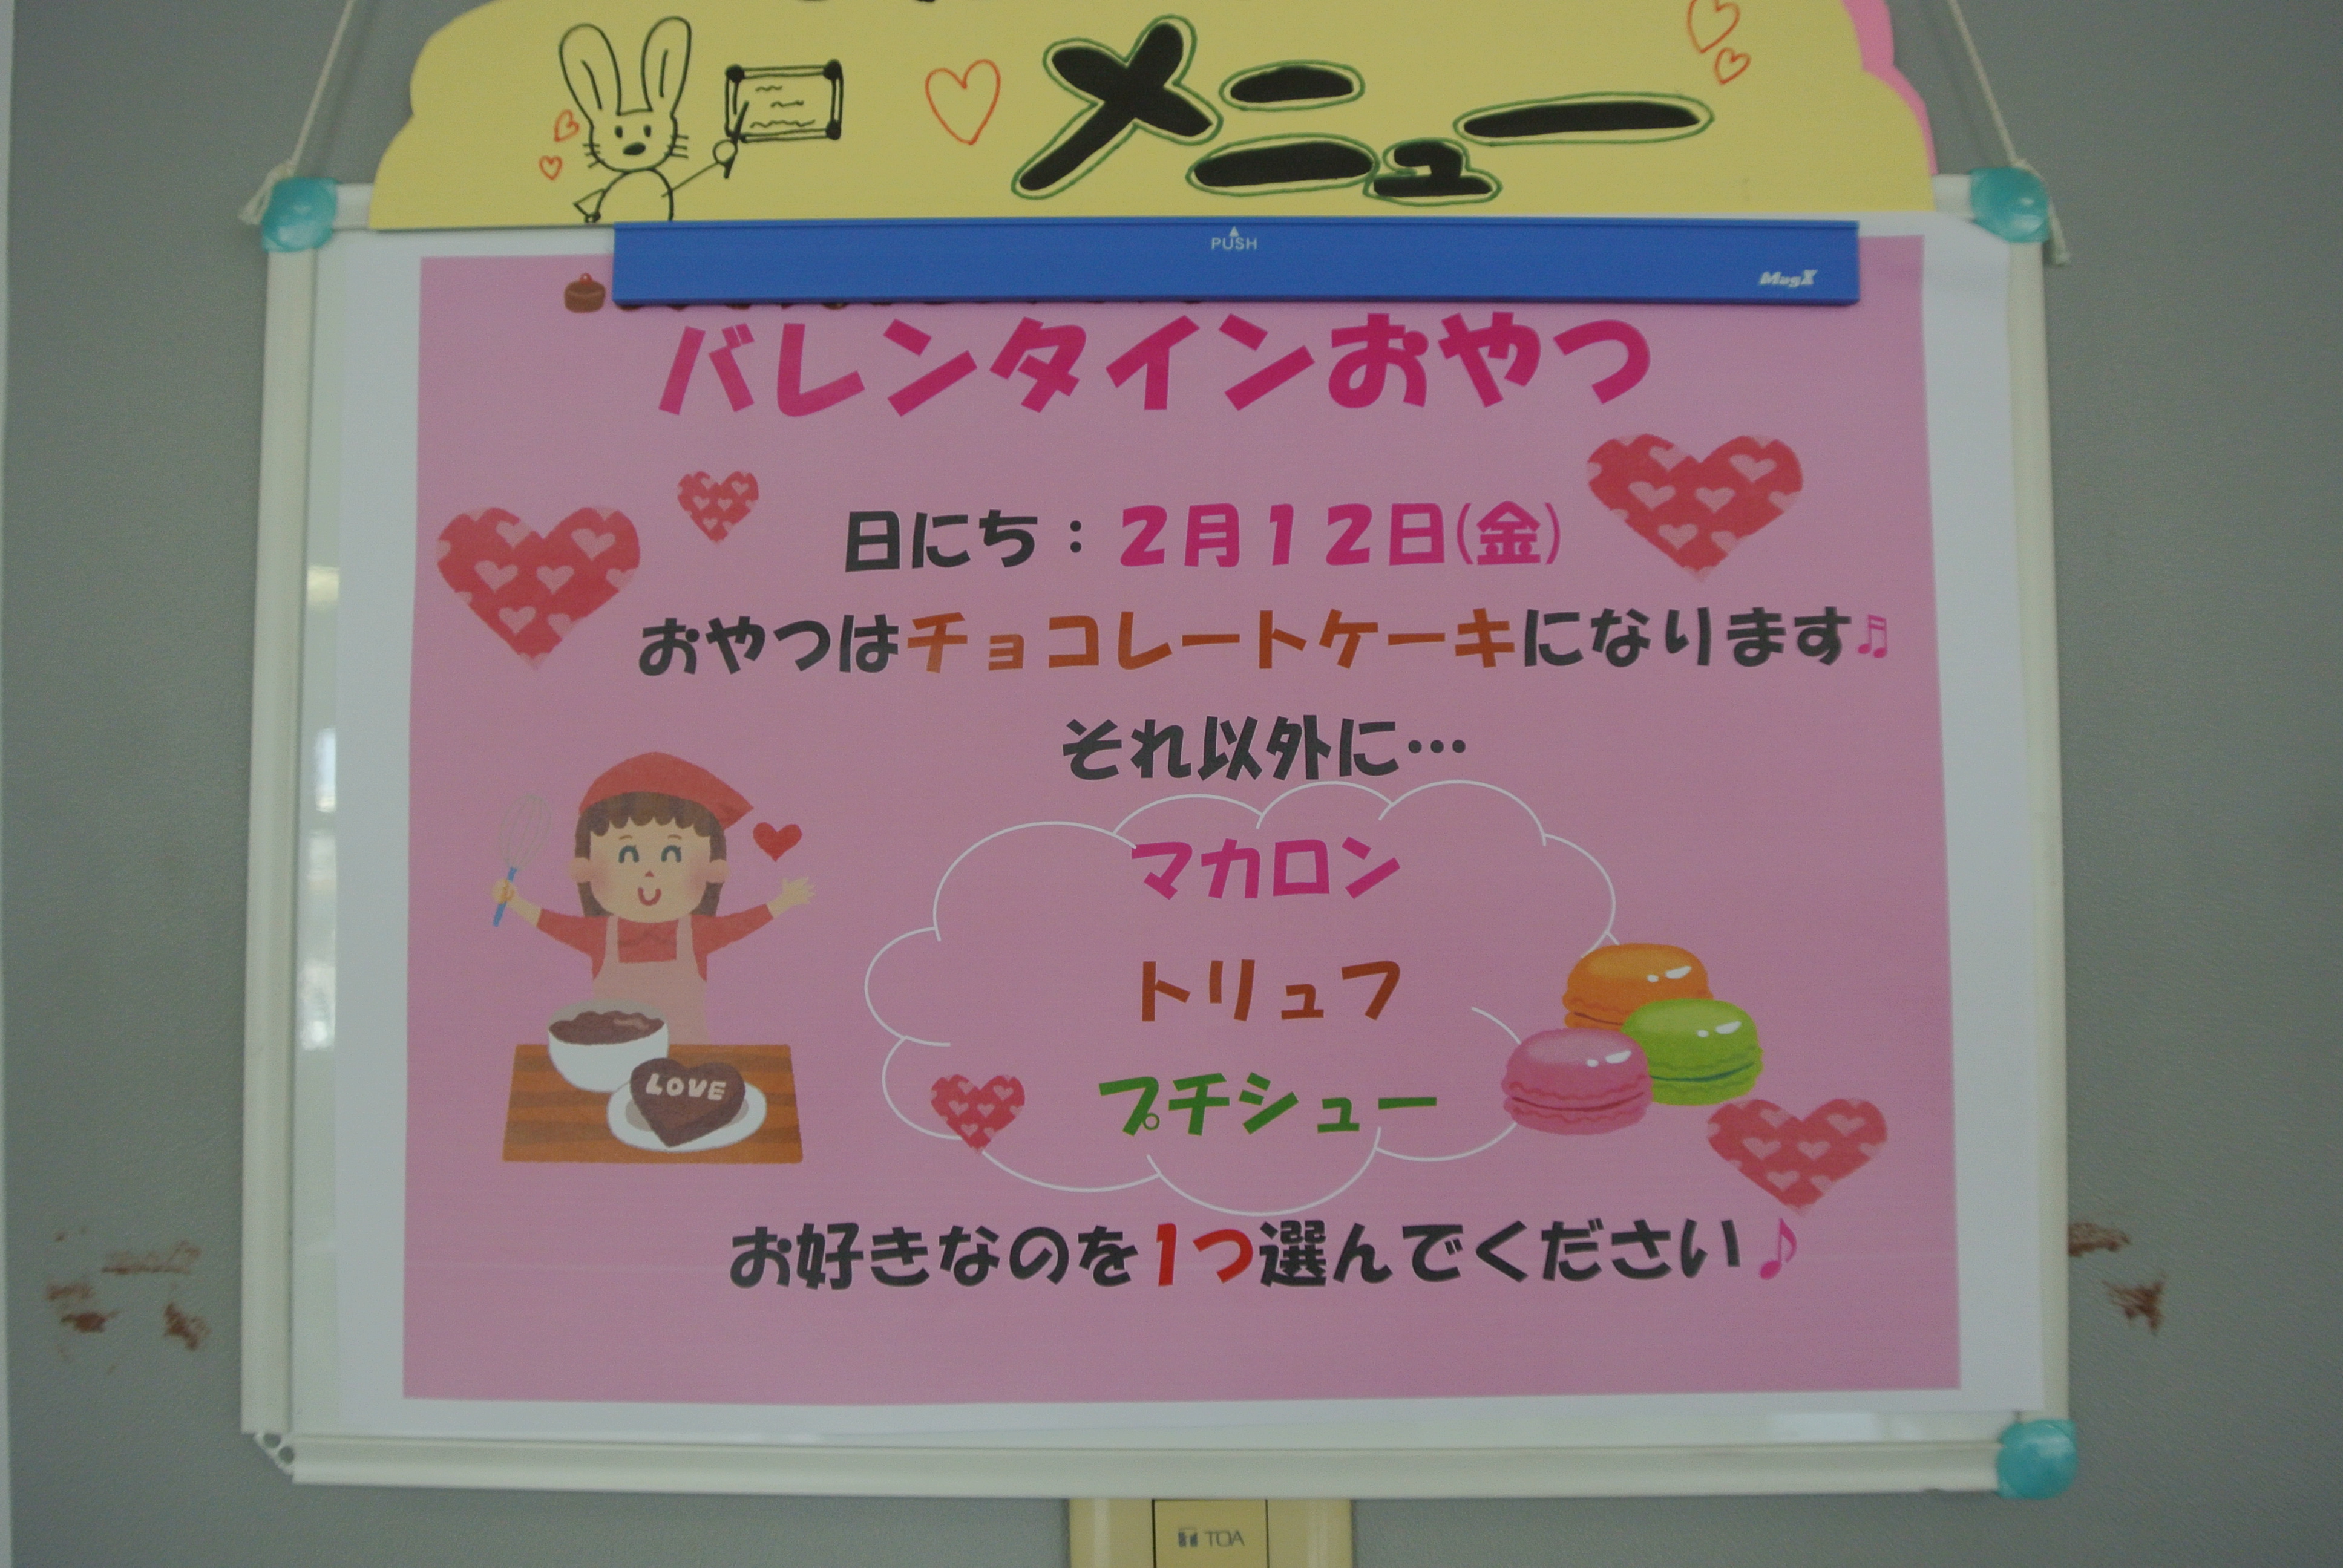 メニュー
PUSH
MagX
バレンタインおやつ
日にち：2月12日(金)
おやつはチョコレートケーキになります♬
それ以外に…
マカロン
トリュフ
プチシュー
LOVE
お好きなのを1つ選んでください♪
TOA